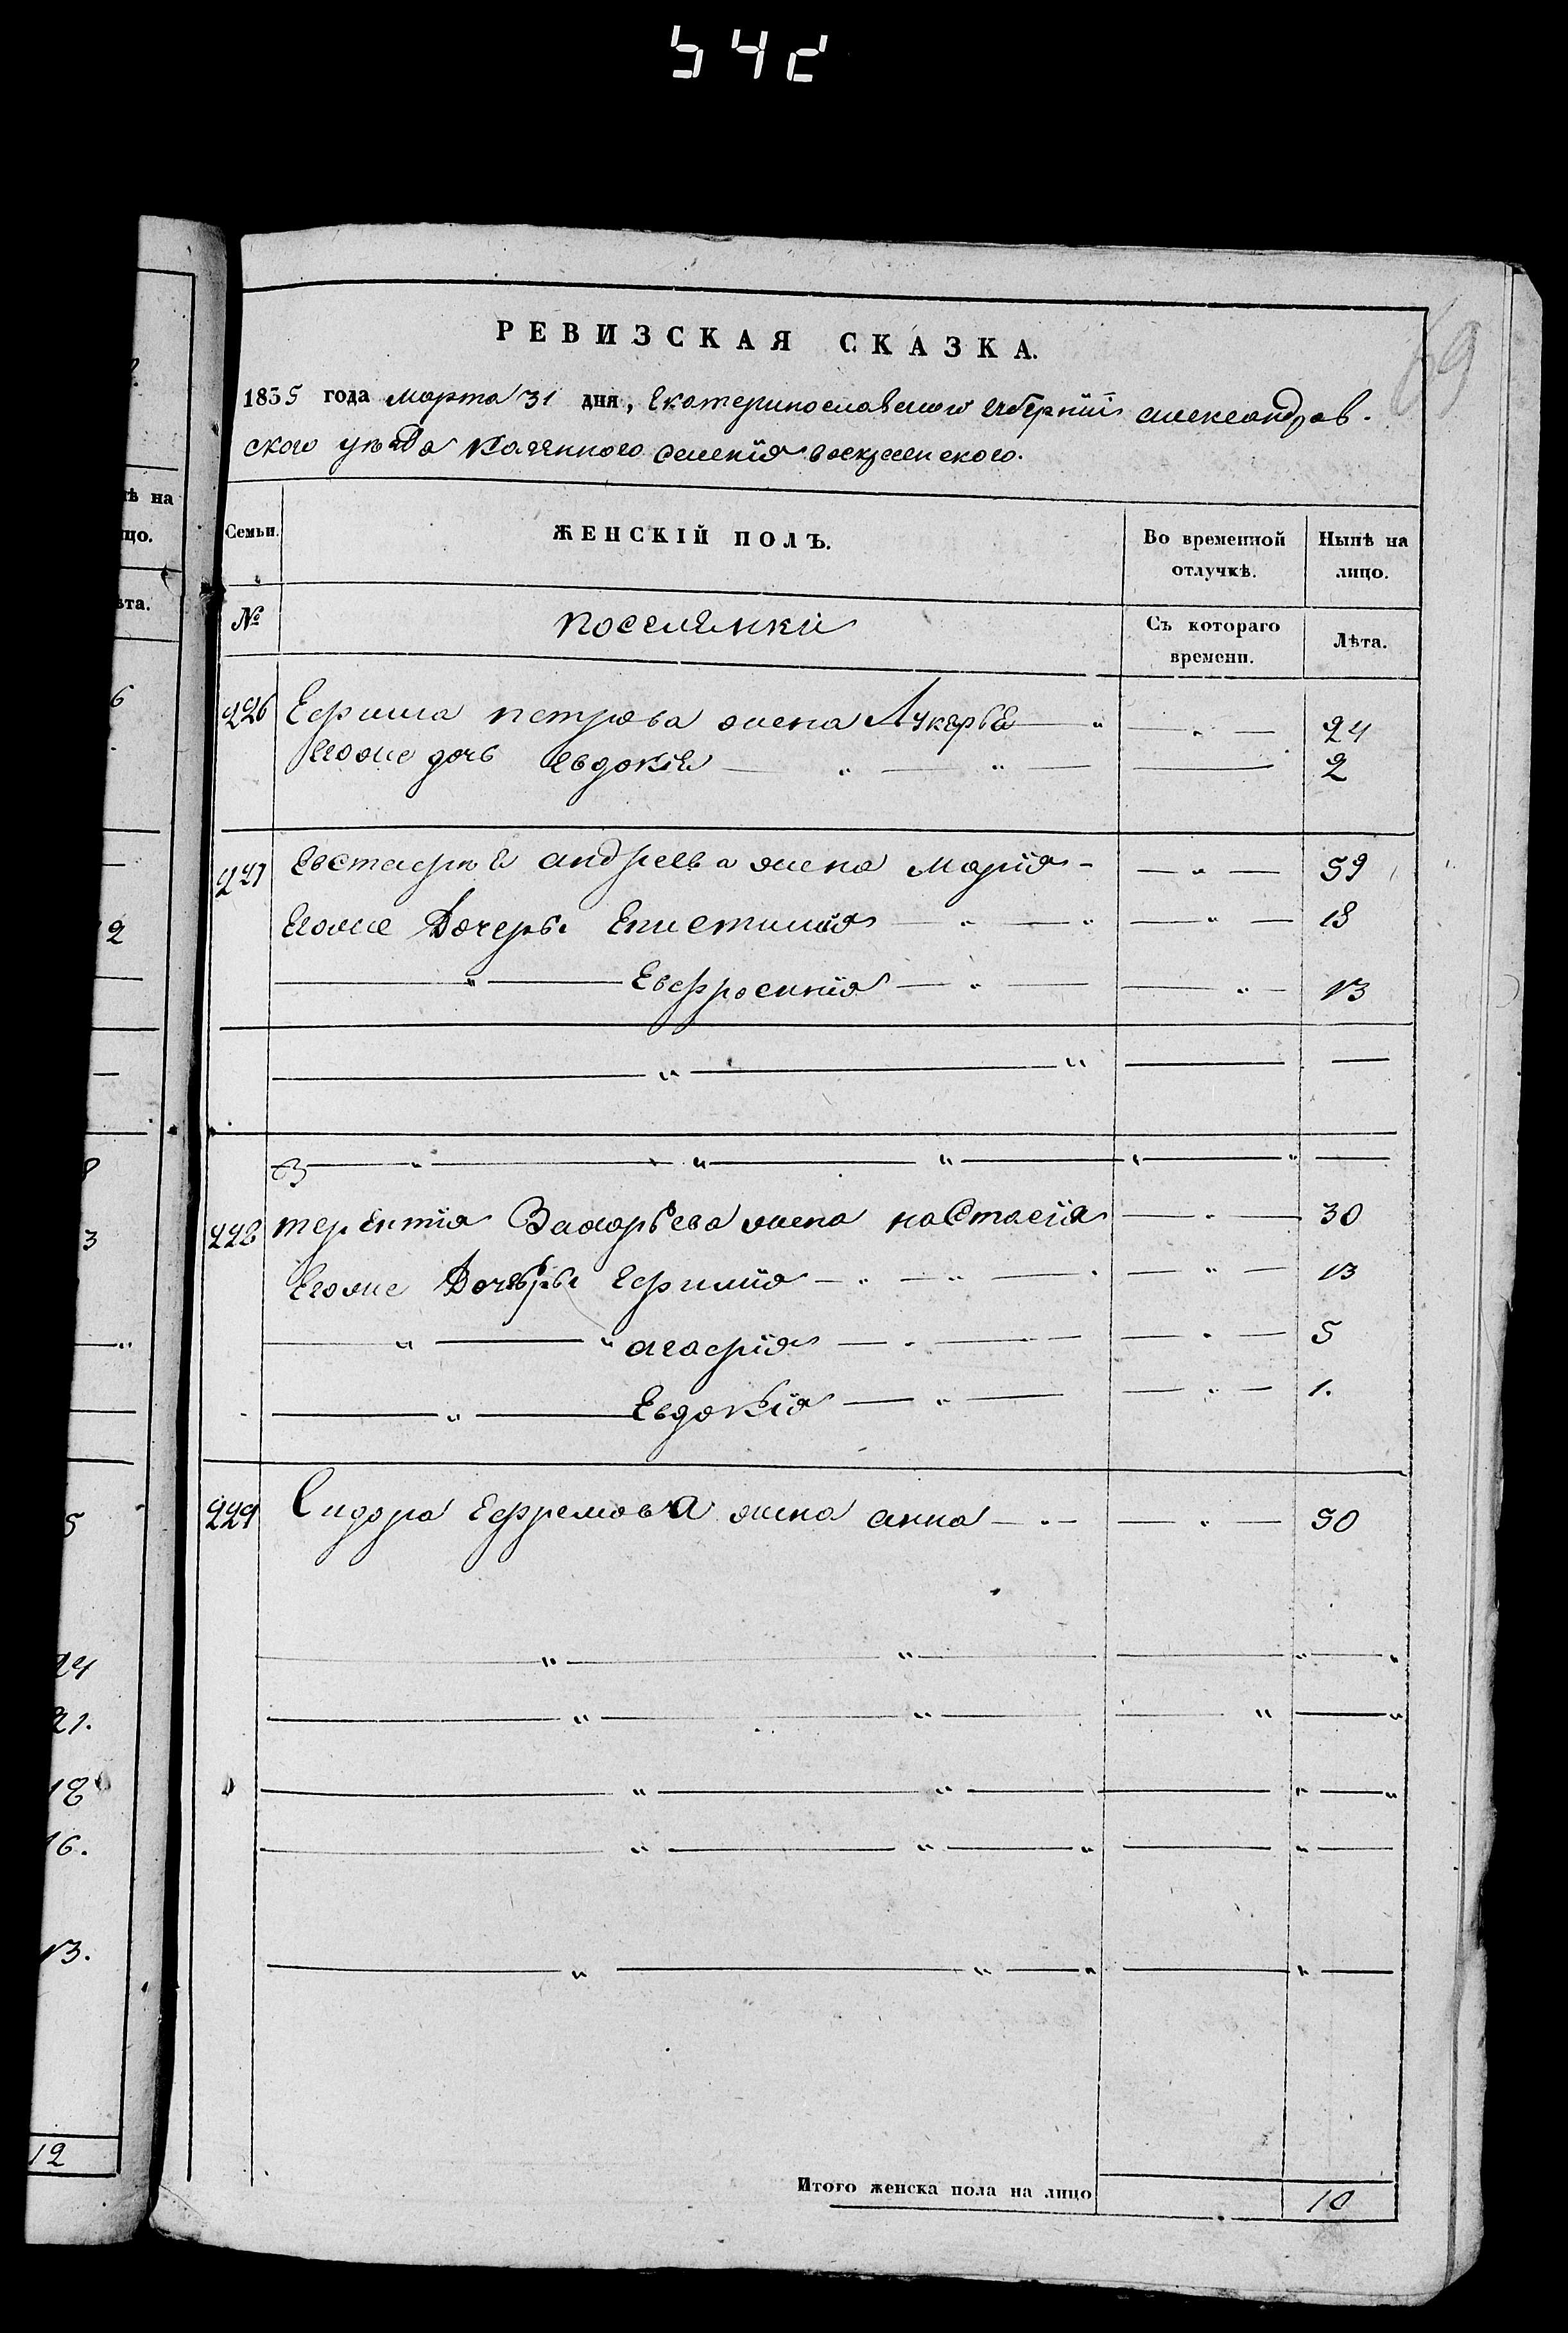 542
69
РЕВИЗСКАЯ СКАЗКА.
1835 года марта 31 дня, Екатеринославской губернiи александров-
ского уѣзда казенного селенiя воскресенского.
Семьи. ЖЕНСКІЙ ПОЛЪ. Во временной отлучкѣ. Нынѣ на лицо.
№ поселянки Съ котораго времени. Лѣта.
226 Ефима петрова жена Лукерья — " — " — 24
Егоже дочь Евдокiя — " — " — 2
227 Евстафiя андреева жена марiя - — " — 59
Егоже Дочери Епистимiя — " — " — " — 18
— " — Евфросинiя — " — — " — 13
— " — " — —
— " — " — " — " — " —
228 терентiя Захарьева жена настасiя — " — 30
Егоже Дочери Ефимiя — " — " — " — 13
— " — " агафiя — " — — " — 5
— " — Евдокiя — " — — " — 1.
229 Сидора Ефремова жена анна — " — — " — 50
— " — " — — " — "
— " — " — — " — "
— " — " — — " — "
— " — " — " — " —
— " — " — " — " —
Итого женска пола на лицо 10
ѣ на
цо.
ѣта.
6
2
8
3
5
24
21.
18
16.
13.
12